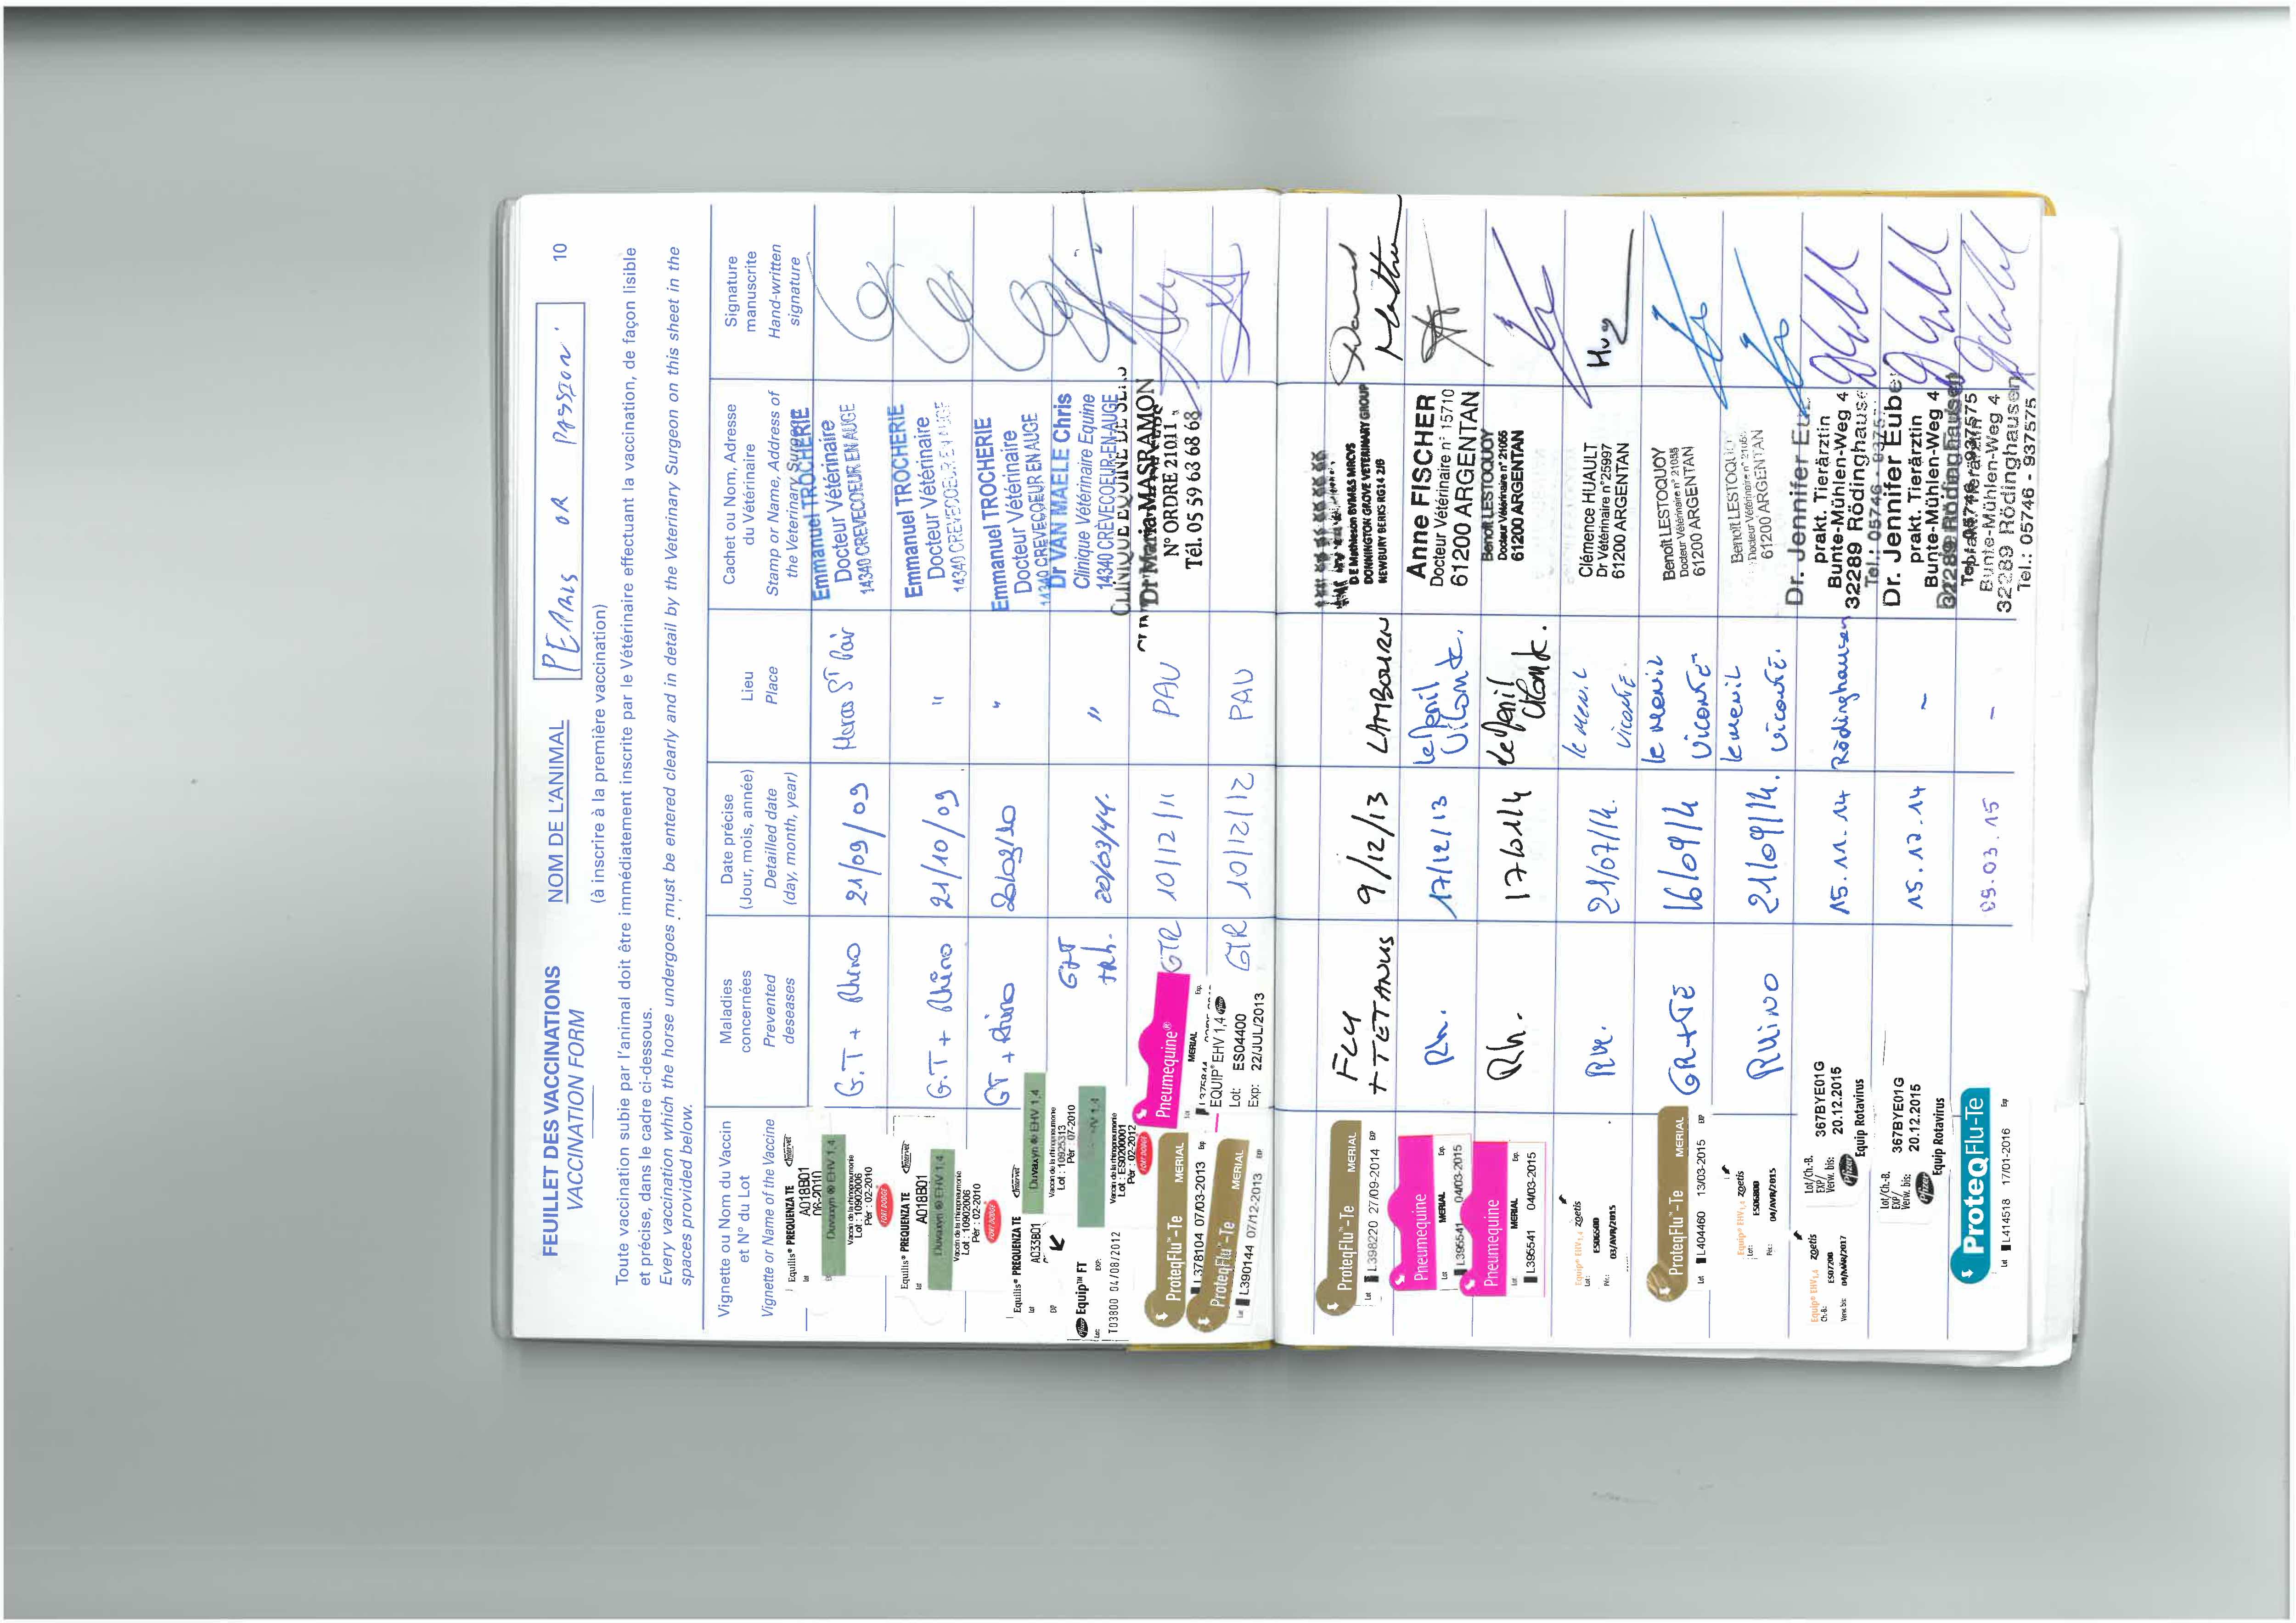 FEUILLET DES VACCINATIONS NOM DE L'ANIMAL PEARLS OR PASSION 10
VACCINATION FORM (à inscrire à la première vaccination)
Toute vaccination subie par l'animal doit être immédiatement inscrite par le Vétérinaire effectuant la vaccination, de façon lisible
et précise, dans le cadre ci-dessous.
Every vaccination which the horse undergoes must be entered clearly and in detail by the Veterinary Surgeon on this sheet in the
spaces provided below.
Vignette ou Nom du Vaccin
et N° du Lot
Vignette or Name of the Vaccine
Maladies
concernées
Prevented
deseases
Date précise
(Jour, mois, année)
Detailled date
(day, month, year)
Lieu
Place
Cachet ou Nom, Adresse
du Vétérinaire
Stamp or Name, Address of
the Veterinary Surgeon
Signature
manuscrite
Hand-written
signature
Equilis® PREQUENZA TE Intervet
A018B01
06-2010
Duvaxyn ® EHV 1,4
Vaccin de la rhinopneumonie
Lot : 10902006
Pér : 02-2010
FORT DODGE
G.T + Rhino
21/09/09
Haras St Pair
Emmanuel TROCHERIE
Docteur Vétérinaire
14340 CREVECOEUR EN AUGE
Equilis® PREQUENZA TE Intervet
A018B01
Duvaxyn ® EHV 1,4
Vaccin de la rhinopneumonie
Lot : 10902006
Pér : 02-2010
FORT DODGE
G.T + Rhino
21/10/09
"
Emmanuel TROCHERIE
Docteur Vétérinaire
14340 CREVECOEUR EN AUGE
Equilis® PREQUENZA TE Intervet
A033B01
Duvaxyn ® EHV 1,4
Vaccin de la rhinopneumonie
Lot : 10925313
Pér 07-2010
GT + Rhino
"
Emmanuel TROCHERIE
Docteur Vétérinaire
14340 CREVECOEUR EN AUGE
Pfizer Equip™ FT
Lot: EXP:
T03800 04/08/2012
Vaccin de la rhinopneumonie
Lot : ES0200001
Pér : 02-2012
FORT DODGE
"
Dr VAN MAELE Chris
Clinique Vétérinaire Equine
14340 CRÈVECOEUR-EN-AUGE
ProteqFlu™-Te MERIAL
L378104 07/03-2013
Pneumequine®
MERIAL
GTR
10/12/11
PAU
Dr Maria MASRAMON
N° ORDRE 21011
Tél. 05 59 63 68 68
ProteqFlu™-Te MERIAL
L390144 07/12-2013
EQUIP® EHV 1,4
Lot: ES04400
Exp: 22/JUL/2013
GTR
10/12/12
PAU
ProteqFlu™-Te MERIAL
L398220 27/09-2014
FLU
+ TETANUS
9/12/13
LAMBOURN
DONNINGTON GROVE VETERINARY GROUP
NEWBURY BERKS RG14 2JB
Pneumequine
MERIAL
L395541 04/03-2015
Rh.
17/12/13
Anne FISCHER
Docteur Vétérinaire n° 15710
61200 ARGENTAN
Pneumequine
MERIAL
L395541 04/03-2015
Rh.
Benoît LESTOQUOY
Docteur Vétérinaire n° 21055
61200 ARGENTAN
Equip® EHV 1,4 zoetis
Lot: ES06500
Pér.: 03/AVR/2015
21/07/14.
le menil
vicomte.
Clémence HUAULT
Dr Vétérinaire n°25997
61200 ARGENTAN
ProteqFlu™-Te MERIAL
L404460 13/03-2015
GR+TE
16/09/14
le menil
Vicomte
Benoît LESTOQUOY
Docteur Vétérinaire n° 21055
61200 ARGENTAN
Equip® EHV 1,4 zoetis
Lot: ES06800
Pér.: 04/AVR/2015
RHINO
21/09/14.
le menil
vicomté.
Benoît LESTOQUOY
Docteur Vétérinaire n° 21055
61200 ARGENTAN
Equip® EHV 1,4 zoetis
Ch.-B.: ES07200
Verw. bis: 04/MÄR/2017
Lot/Ch.-B. 367BYE01G
EXP/
Verw. bis: 20.12.2015
Pfizer Equip Rotavirus
15.11.14
Rödinghausen
prakt. Tierärztin
Bunte-Mühlen-Weg 4
32289 Rödinghausen
Tel.: 05746 - 937575
Lot/Ch.-B. 367BYE01G
EXP/
Verw. bis: 20.12.2015
Pfizer Equip Rotavirus
15.12.14
-
Dr. Jennifer Eube
prakt. Tierärztin
Bunte-Mühlen-Weg 4
32289 Rödinghausen
ProteqFlu-Te
Lot L414518 17/01-2016 Exp
05.03.15
-
Bunte-Mühlen-Weg 4
32289 Rödinghausen
Tel.: 05746 - 937575